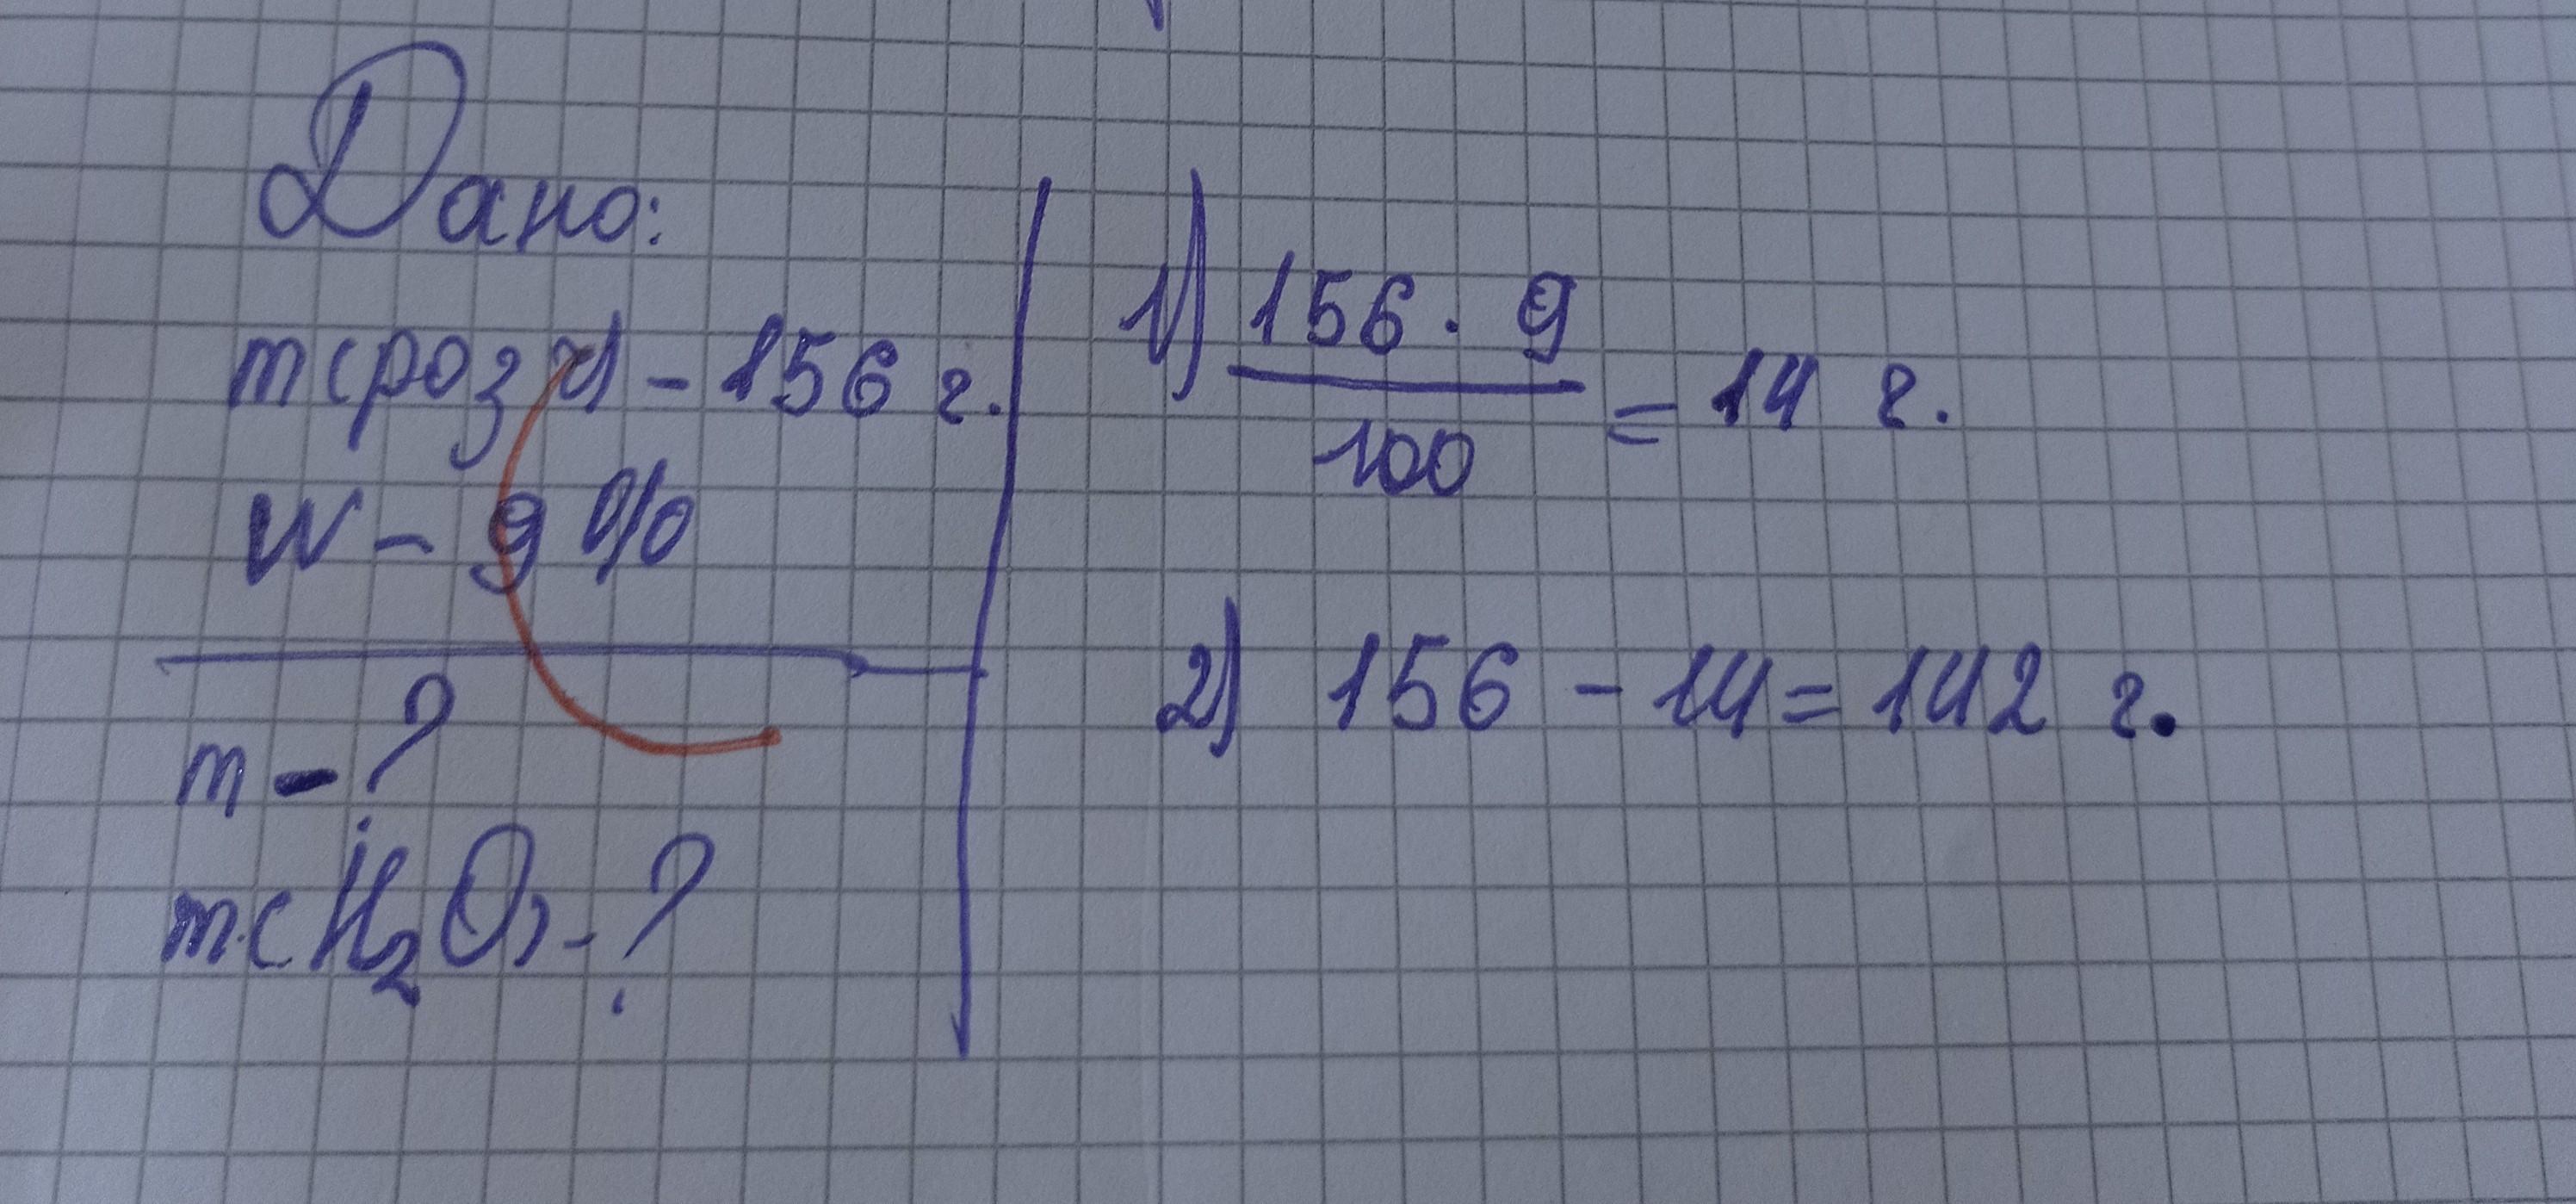 Дано:
m(розч) - 156 г.
W - 9 %
m - ?
m(H₂O) - ?
1) 156 · 9 / 100 = 14 г.
2) 156 - 14 = 142 г.